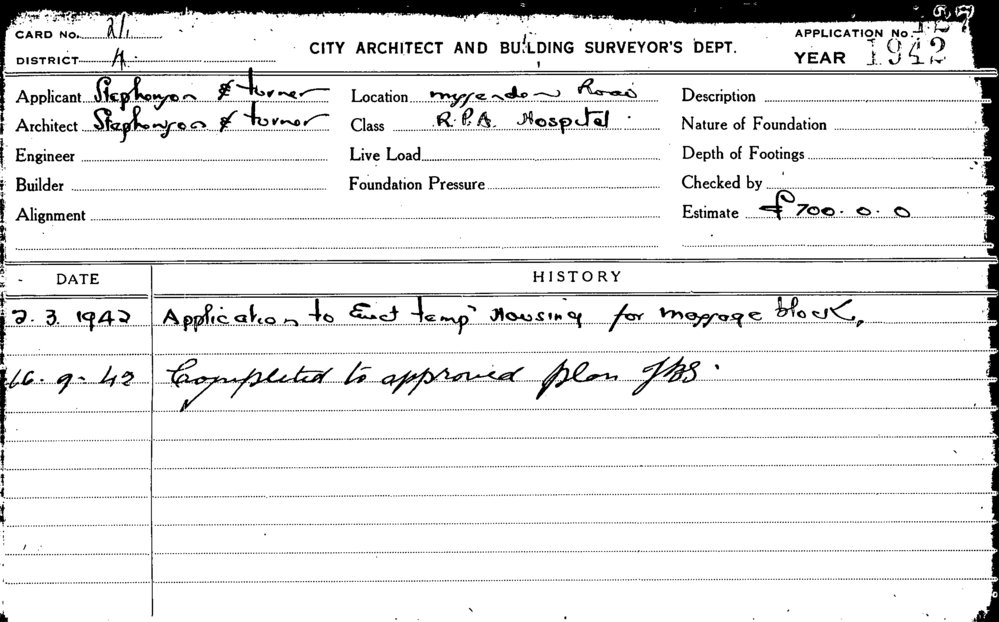 CARD No. 2/1
APPLICATION No. 127
DISTRICT A
CITY ARCHITECT AND BUILDING SURVEYOR'S DEPT.
YEAR 1942
Applicant Stephenson & turner Location Myssenden Road Description
Architect Stephenson & turner Class R.P.A. Hospital. Nature of Foundation
Engineer Live Load Depth of Footings
Builder Foundation Pressure Checked by
Alignment Estimate £700.0.0
DATE HISTORY
2.3.1942 Application to Erect temp' Housing for massage block.
16.9.42 Completed to approved plan JBS.